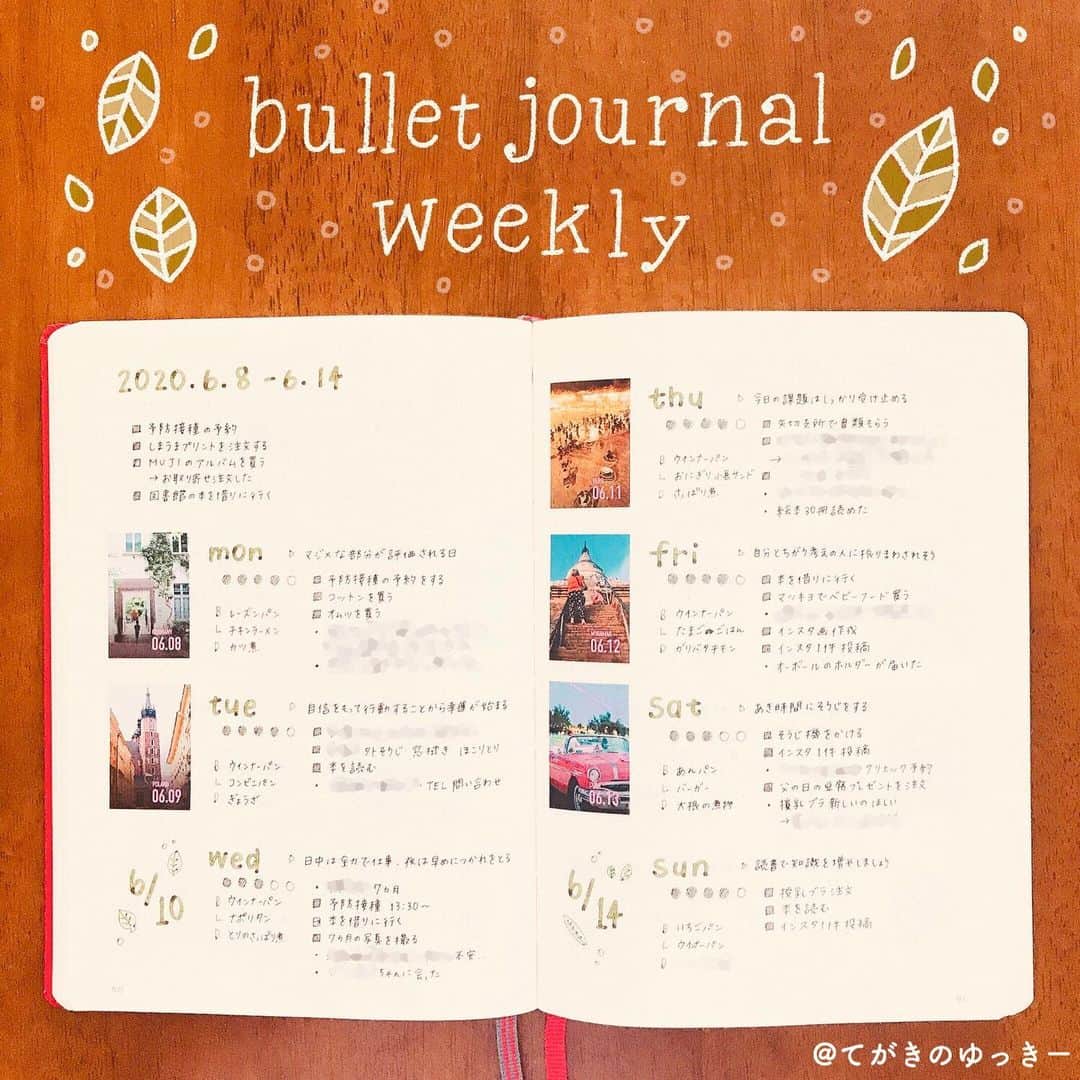 bullet journal
weekly
2020.6.8 - 6.14
予防接種の予約
しまうまプリントを注文する
MUJIのアルバムを買う
→お取り寄せ注文した
図書館の本を借りに行く
mon
▷ マジメな部分が評価される日
予防接種の予約をする
コットンを買う
オムツを買う
B レーズンパン
L チキンラーメン
D カツ煮
GERMANY
06.08
tue
▷ 自信をもって行動することから幸運が始まる
外そうじ 窓拭き ほこりとり
本を読む
TEL 問い合わせ
B ウインナーパン
L コンビニパン
D ぎょうざ
POLAND
06.09
6/10
wed
▷ 日中は全力で仕事、夜は早めにつかれをとる
・ 7ヵ月
予防接種 13:30〜
本を借りに行く
7ヵ月の写真を撮る
・ 不安…
・ ちゃんに会った
B ウインナーパン
L ナポリタン
D とりのさっぱり煮
thu
▷ 今日の課題はしっかり受け止める
で書類もらう
→
・絵本30冊読めた
B ウインナーパン
L おにぎり
D さっぱり煮
06.11
fri
▷ 自分とちがう考えの人に振りまわされそう
本を借りに行く
マツキヨでベビーフード買う
インスタ画作成
インスタ1件投稿
・オーボールのホルダーが届いた
B ウインナーパン
L たまごごはん
D ガリバタチキン
MYANMAR
06.12
sat
▷ あき時間にそうじをする
そうじ機をかける
インスタ1件投稿
・ クリニック予約
父の日の プレゼントを注文
・授乳ブラ新しいのほしい
→
B あんパン
L バーガー
D 大根の煮物
CUBA
06.13
6/14
sun
▷ 読書で知識を増やしましょう
授乳ブラ注文
本を読む
インスタ1件投稿
B いちごパン
L ウインナーパン
D
@てがきのゆっきー